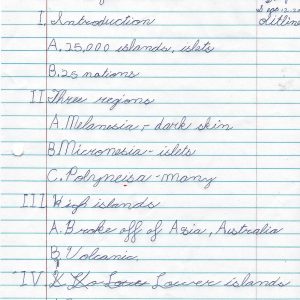 Sep. 12, 20
Outline
I. Introduction
A. 25,000 islands, islets
B. 25 nations
II Three regions
A. Melanesia - dark skin
B. Micronesia - islets
C. Polyneisa - many
III High islands
A. Broke off of Azia, Australia
B. Volcanic
IV Lower islands